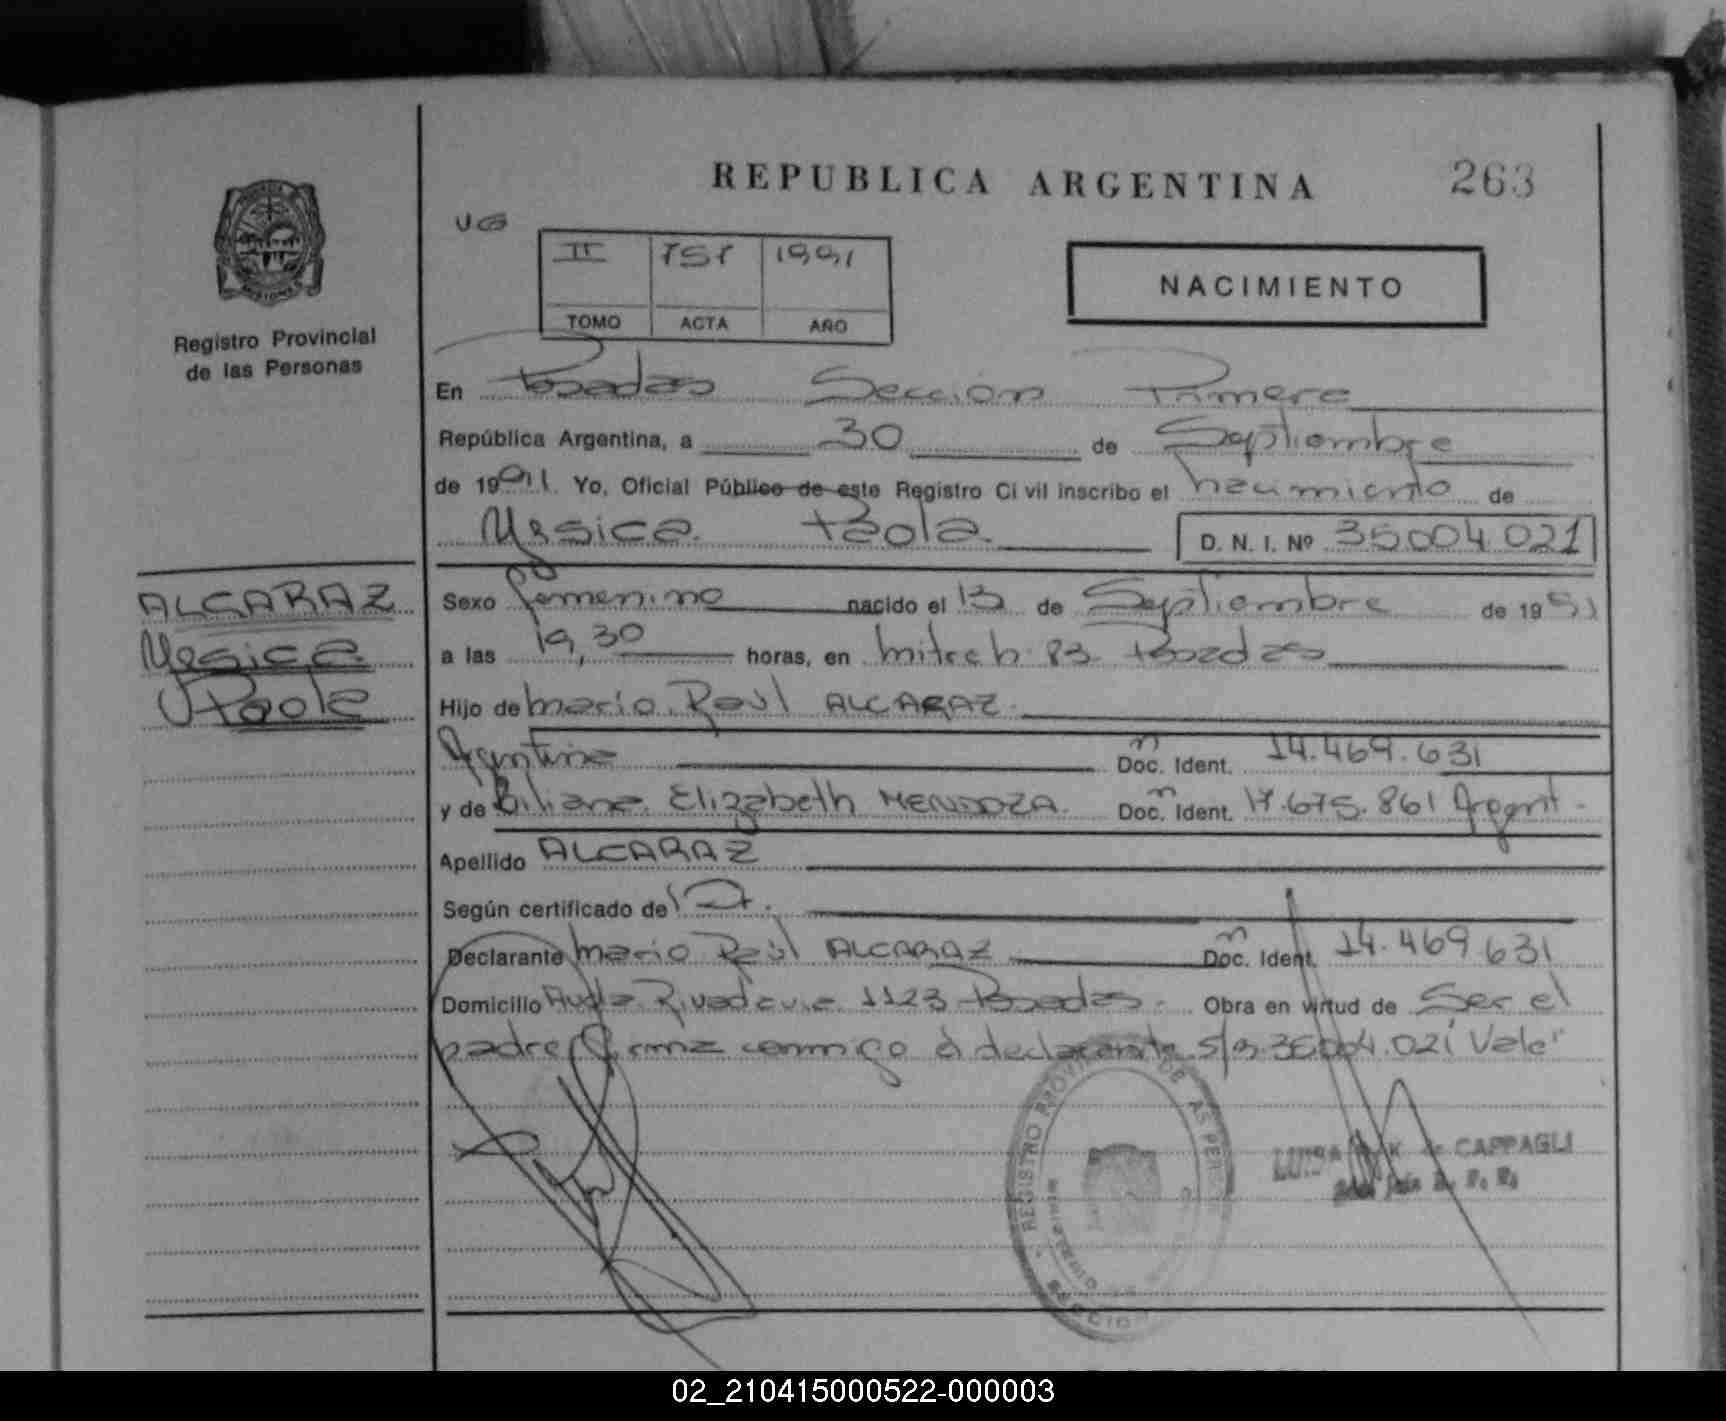 REPUBLICA ARGENTINA
263
VG
II 757 1991
TOMO ACTA AÑO
NACIMIENTO
MISIONES
Registro Provincial
de las Personas
En Posadas Sección Primera
República Argentina, a 30 de Septiembre
de 1991. Yo, Oficial Público de este Registro Civil inscribo el nacimiento de
Yesica Paola D. N. I. Nº 35004021
ALCARAZ
Yesica
Paola
Sexo femenino nacido el 13 de Septiembre de 1991
a las 19,30 horas, en Mitre h: 83 Posadas
Hijo de Mario Raúl ALCARAZ
Argentina Doc. Ident. 14.469.631
y de Biliana Elizabeth MENDOZA. Doc. Ident. 17.675.861 Argent.
Apellido ALCARAZ
Según certificado de
Declarante Mario Raúl ALCARAZ Doc. Ident. 14.469.631
Domicilio Avda Rivadavia 1123 Posadas. Obra en virtud de Ser el
padre firma conmigo el declarante s/r 35004.021 Vale"
REGISTRO PROVINCIAL DE LAS PERSONAS
LUISA K. de CAPPAGLI
02_210415000522-000003